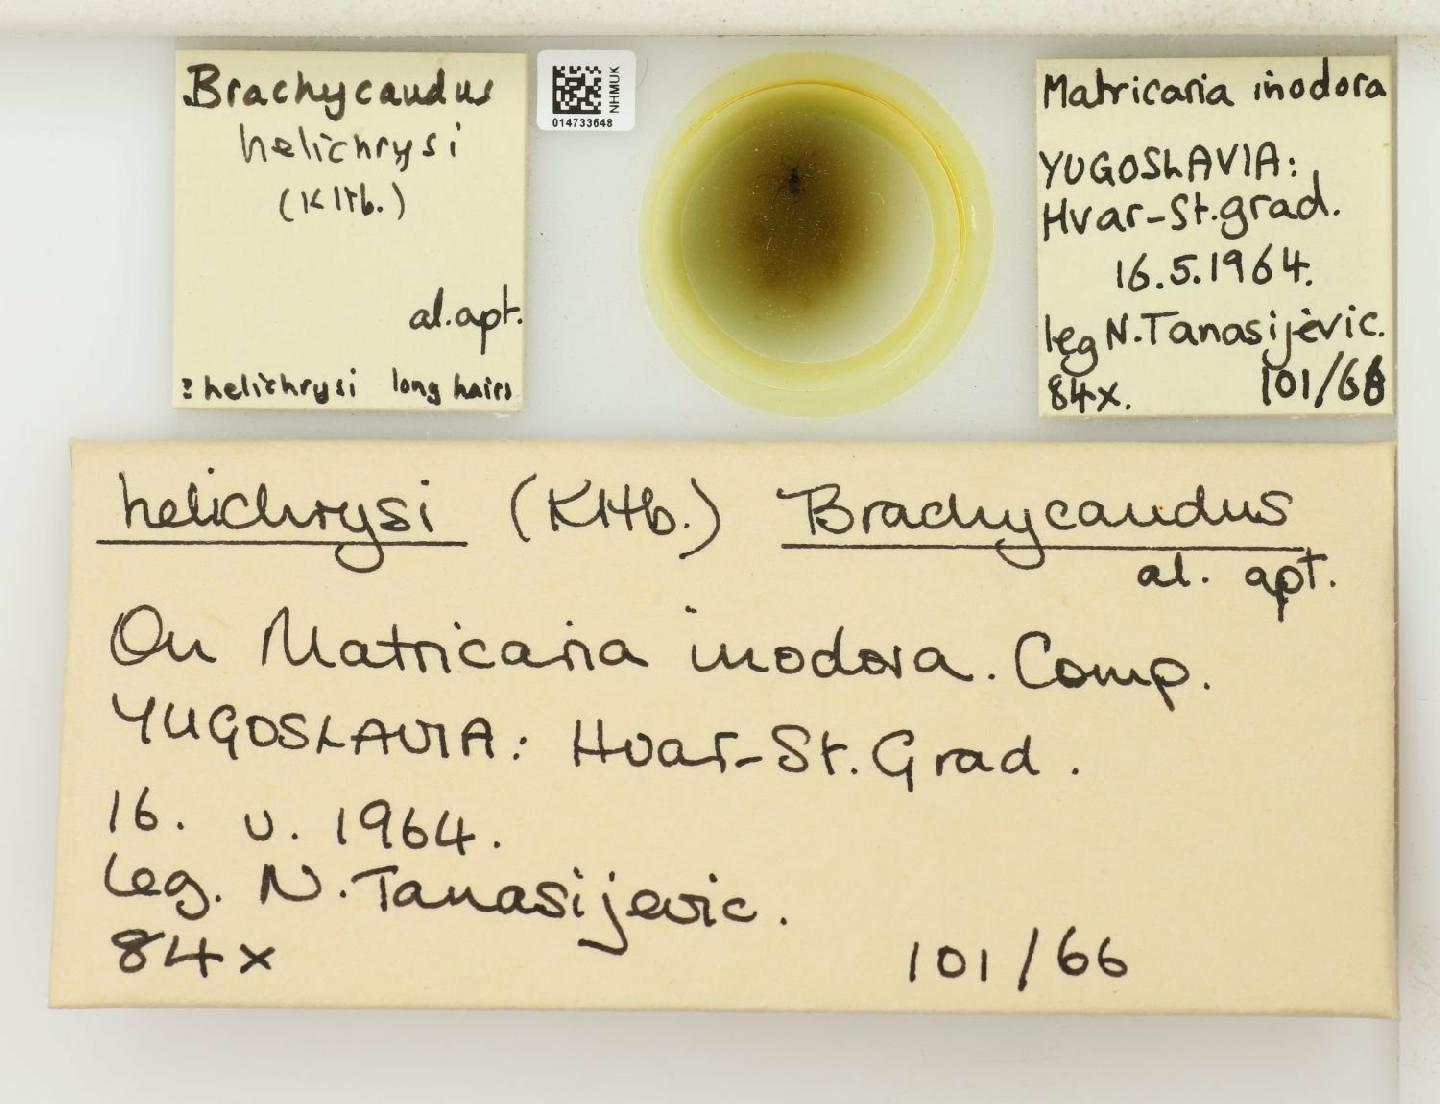 Brachycaudus
helichrysi
(Kltb.)
al. apt.
? helichrysi long hairs
NHMUK
014733648
Matricaria inodora
YUGOSLAVIA:
Hvar-St.grad.
16.5.1964.
leg N.Tanasijevic.
84x. 101/66
helichrysi (Kltb.) Brachycaudus
al. apt.
On Matricaria inodora. Comp.
YUGOSLAVIA: Hvar-St.Grad.
16. v. 1964.
leg. N.Tanasijevic.
84x 101/66